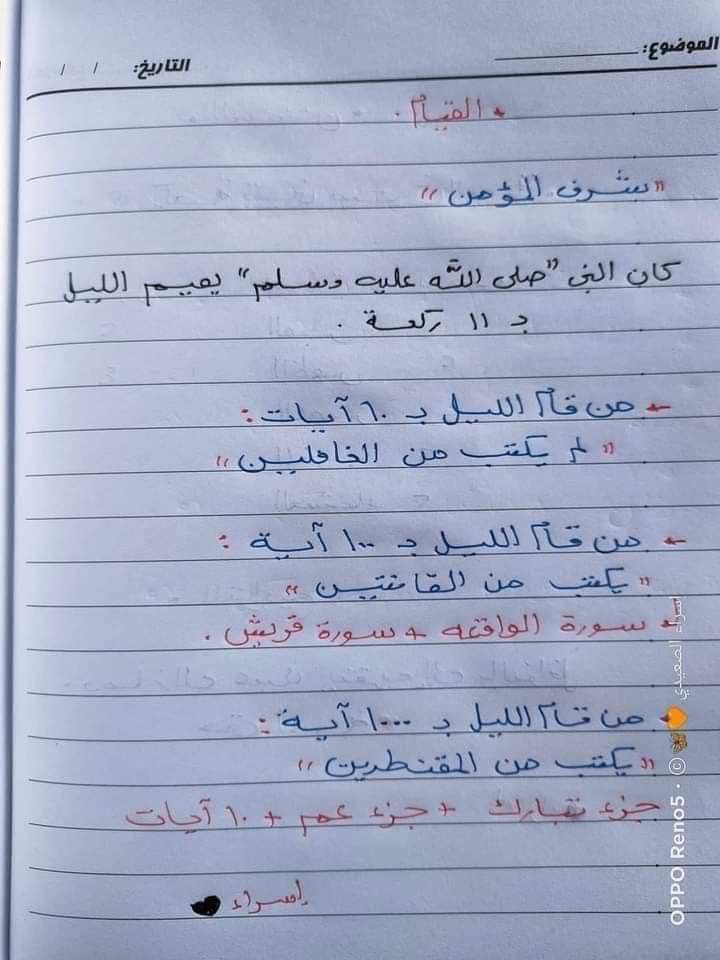 الموضوع:
التاريخ: / /
* القيام.
"شرف المؤمن"
كان النبى "صلى الله عليه وسلم" يقيم الليل
بـ ١١ ركعة .
← من قام الليل بـ ١٠ آيات:
"لم يكتب من الغافلين"
← من قام الليل بـ ١٠٠ آية:
"يكتب من القانتين"
* سورة الواقعه + سورة قريش.
من قام الليل بـ ١٠٠٠ آية:
"يكتب من المقنطرين"
جزء تبارك + جزء عم + ١٠ آيات
إسراء
OPPO Reno5 · © إسراء الصعيدي